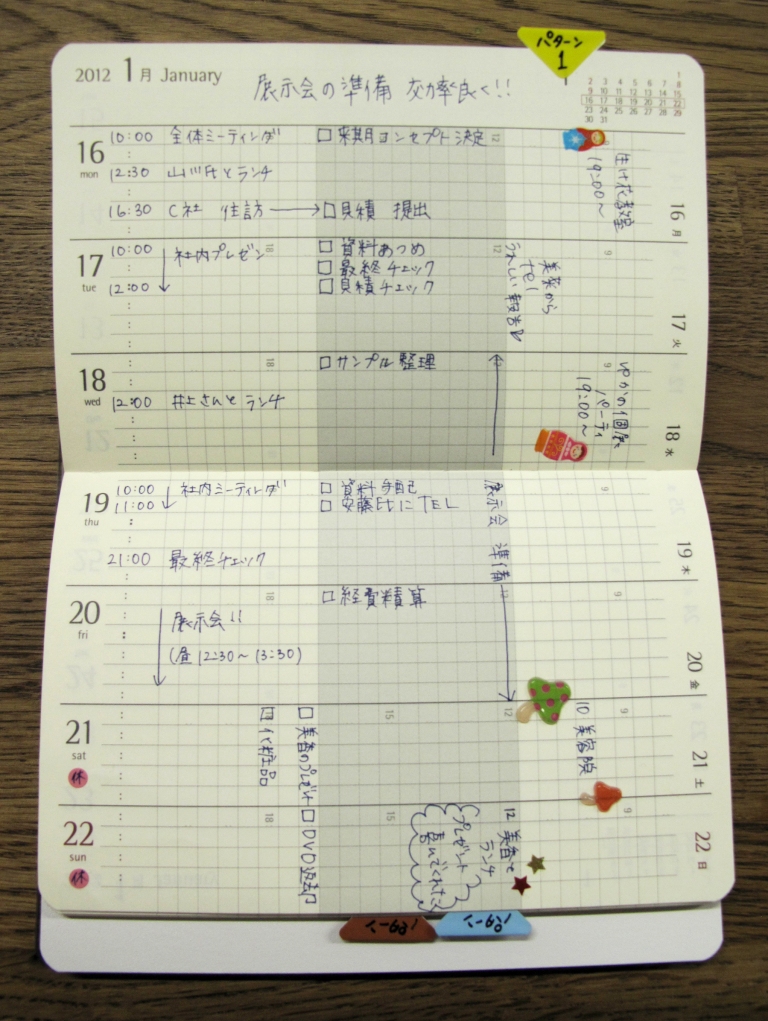 パターン
1
2012 1月 January
展示会の準備 効率良く!!
1
2 3 4 5 6 7 8
9 10 11 12 13 14 15
16 17 18 19 20 21 22
23 24 25 26 27 28 29
30 31
16
mon
10:00 全体ミーティング
12:30 山川氏とランチ
16:30 C社 往訪
□来期コンセプト決定
□見積 提出
生け花教室
19:00〜
16月
17
tue
10:00
12:00
社内プレゼン
□資料あつめ
□最終チェック
□見積チェック
美葉から
TEL
うれしい報告
17火
18
wed
12:00 井上さんとランチ
□サンプル整理
ゆかの個展
パーティ
19:00〜
18水
19
thu
10:00
11:00
社内ミーティング
21:00 最終チェック
□資料手配
□安藤氏にTEL
展示会 準備
19木
20
fri
展示会!!
(昼12:30〜13:30)
□経費精算
20金
21
sat
休
□化粧品
□美香のプレゼント
10 美容院
21土
22
sun
休
□DVD返却
12 美香と
ランチ
プレゼント
喜んでくれた
22日
パターン
パターン